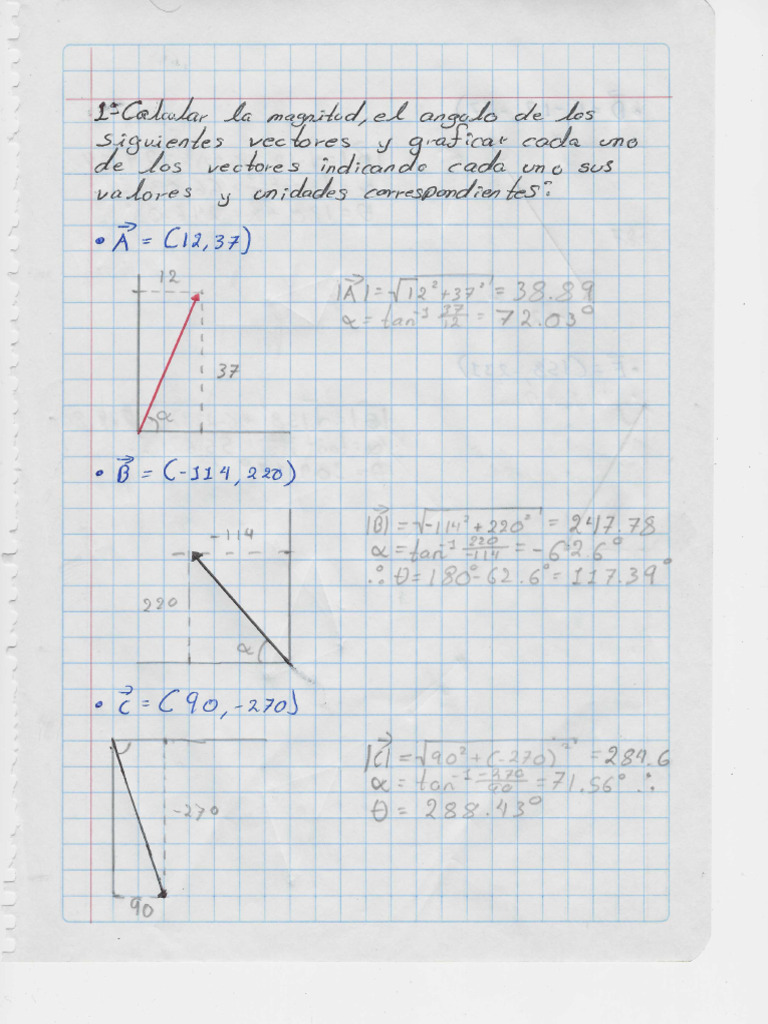 1°-Calcular la magnitud, el angulo de los
siguientes vectores y graficar cada uno
de los vectores indicando cada uno sus
valores y unidades correspondientes:
• A⃗ = (12,37)
12
|A⃗| = √12²+37² = 38.89
α = tan⁻¹ 37/12 = 72.03°
37
α
• B⃗ = (-114, 220)
-114
|B⃗| = √-114²+220² = 247.78
α = tan⁻¹ 220/-114 = -62.6°
∴ θ = 180°-62.6° = 117.39°
220
α
• C⃗ = (90,-270)
|C⃗| = √90²+(-270)² = 284.6
α = tan⁻¹ -270/90 = 71.56° ∴
θ = 288.43°
-270
90